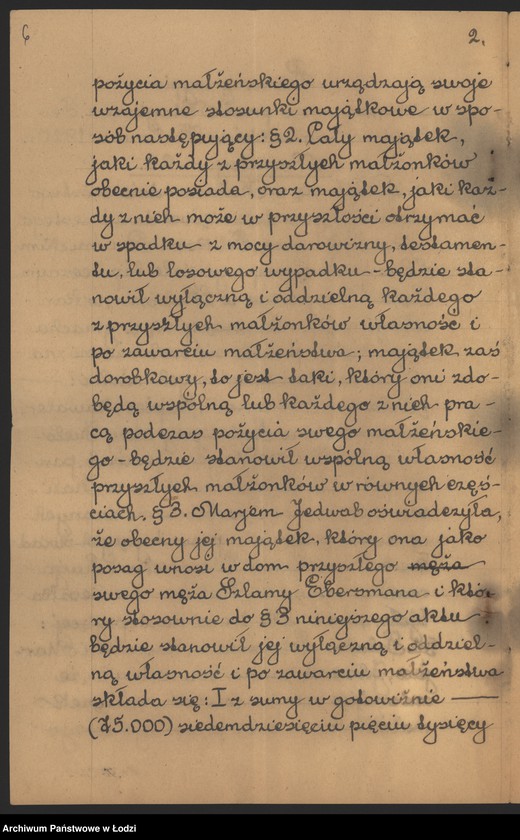 6
2.
pożycia małżeńskiego urządzają swoje
wzajemne stosunki majątkowe w spo-
sób następujący: § 2. Cały majątek,
jaki każdy z przyszłych małżonków
obecnie posiada, oraz majątek, jaki każ-
dy z nich może w przyszłości otrzymać
w spadku z mocy darowizny, testamen-
tu, lub losowego wypadku - będzie sta-
nowił wyłączną i oddzielną każdego
z przyszłych małżonków własność i
po zawarciu małżeństwa; majątek zaś
dorobkowy, to jest taki, który oni zdo-
będą wspólną lub każdego z nich pra-
cą podczas pożycia swego małżeńskie-
go - będzie stanowił wspólną własność
przyszłych małżonków w równych częś-
ciach. § 3. Marjem Jedwab oświadczyła,
że obecny jej majątek, który ona jako
posag wnosi w dom przyszłego męża
swego męża Szlamy Ebersmana i któ-
ry stosownie do § 3 niniejszego aktu
będzie stanowił jej wyłączną i oddziel-
ną własność i po zawarciu małżeństwa
składa się: I z sumy w gotowiźnie —
(75.000) siedemdziesięciu pięciu tysięcy
Archiwum Państwowe w Łodzi